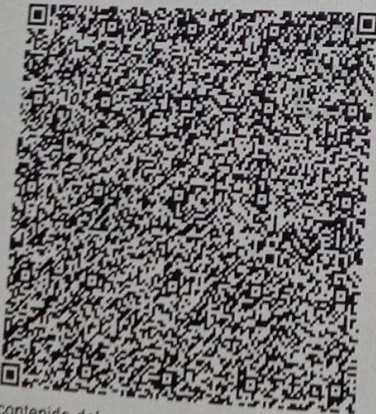 contenido del